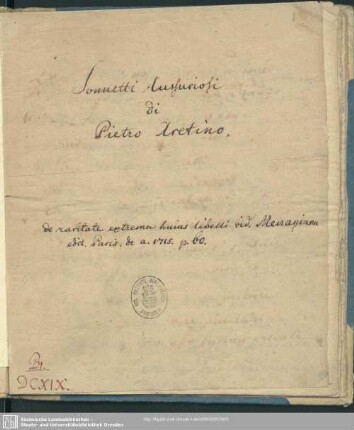 Sonnetti lussuriosi
di
Pietro Aretino.
de raritate extrema huius libelli vid. Menagiana
edit. Paris. de a. 1715. p. 60.
DCXIX.
Sächsische Landesbibliothek -
Staats- und Universitätsbibliothek Dresden